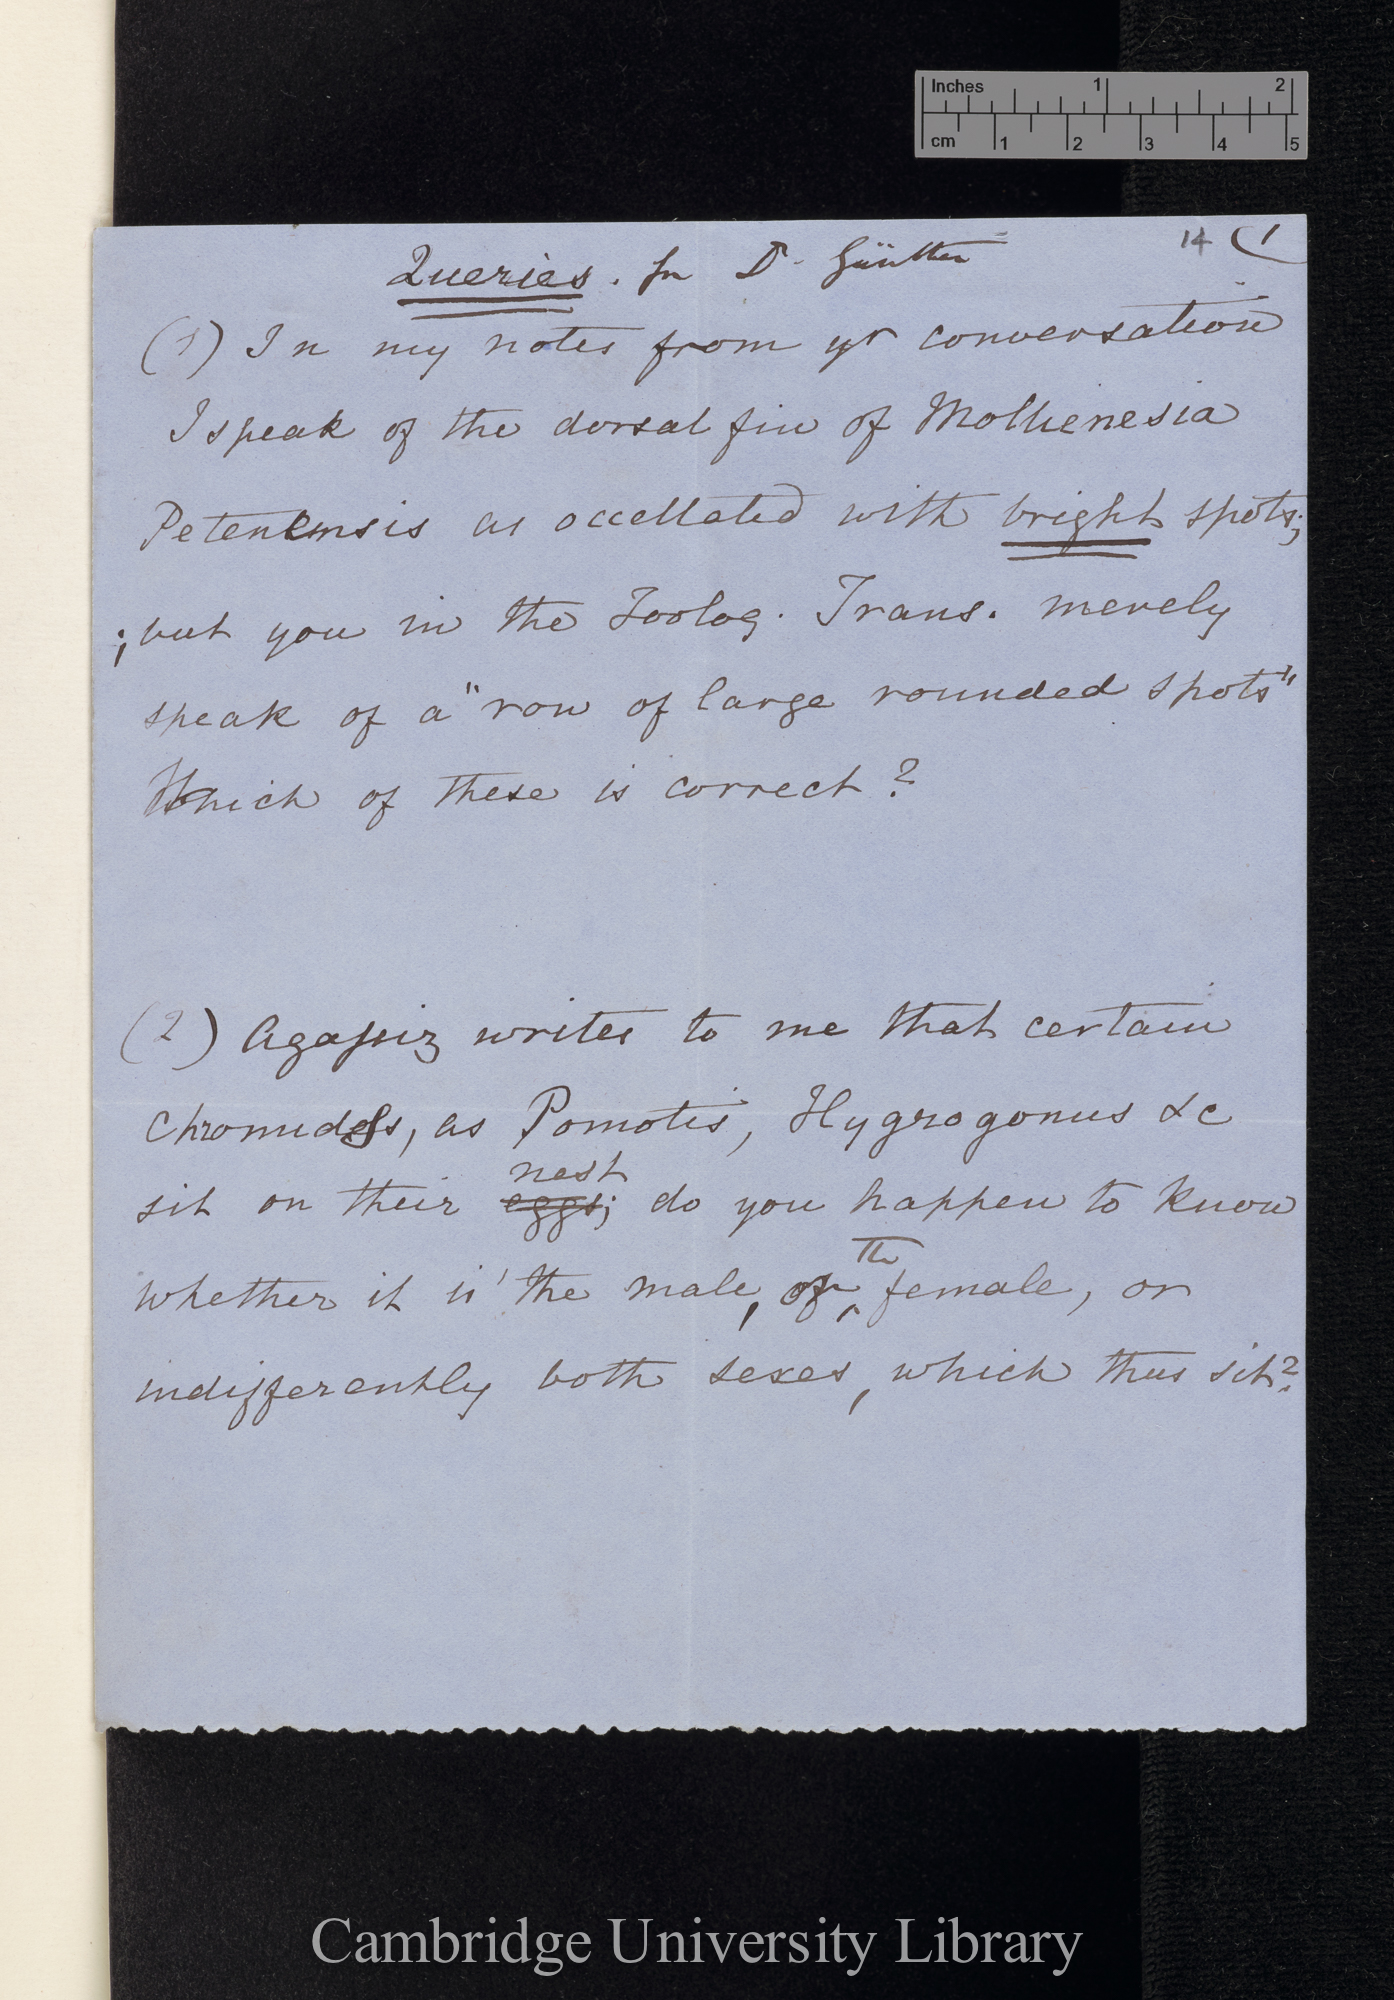 Inches 1 2
cm 1 2 3 4 5
14 (1
Queries. for Dr Günther
(1) In my notes from yr conversation
I speak of the dorsal fin of Mollienesia
Petenensis as occellated with bright spots;
; but you in the Zoolog. Trans. merely
speak of a "row of large rounded spots"
Which of these is correct?
(2) Agassiz writes to me that certain
Chromids, as Pomotis, Hygrogonus &c
nest
sit on their eggs; do you happen to know
the
whether it is the male, or female, or
indifferently both sexes, which thus sit?
Cambridge University Library